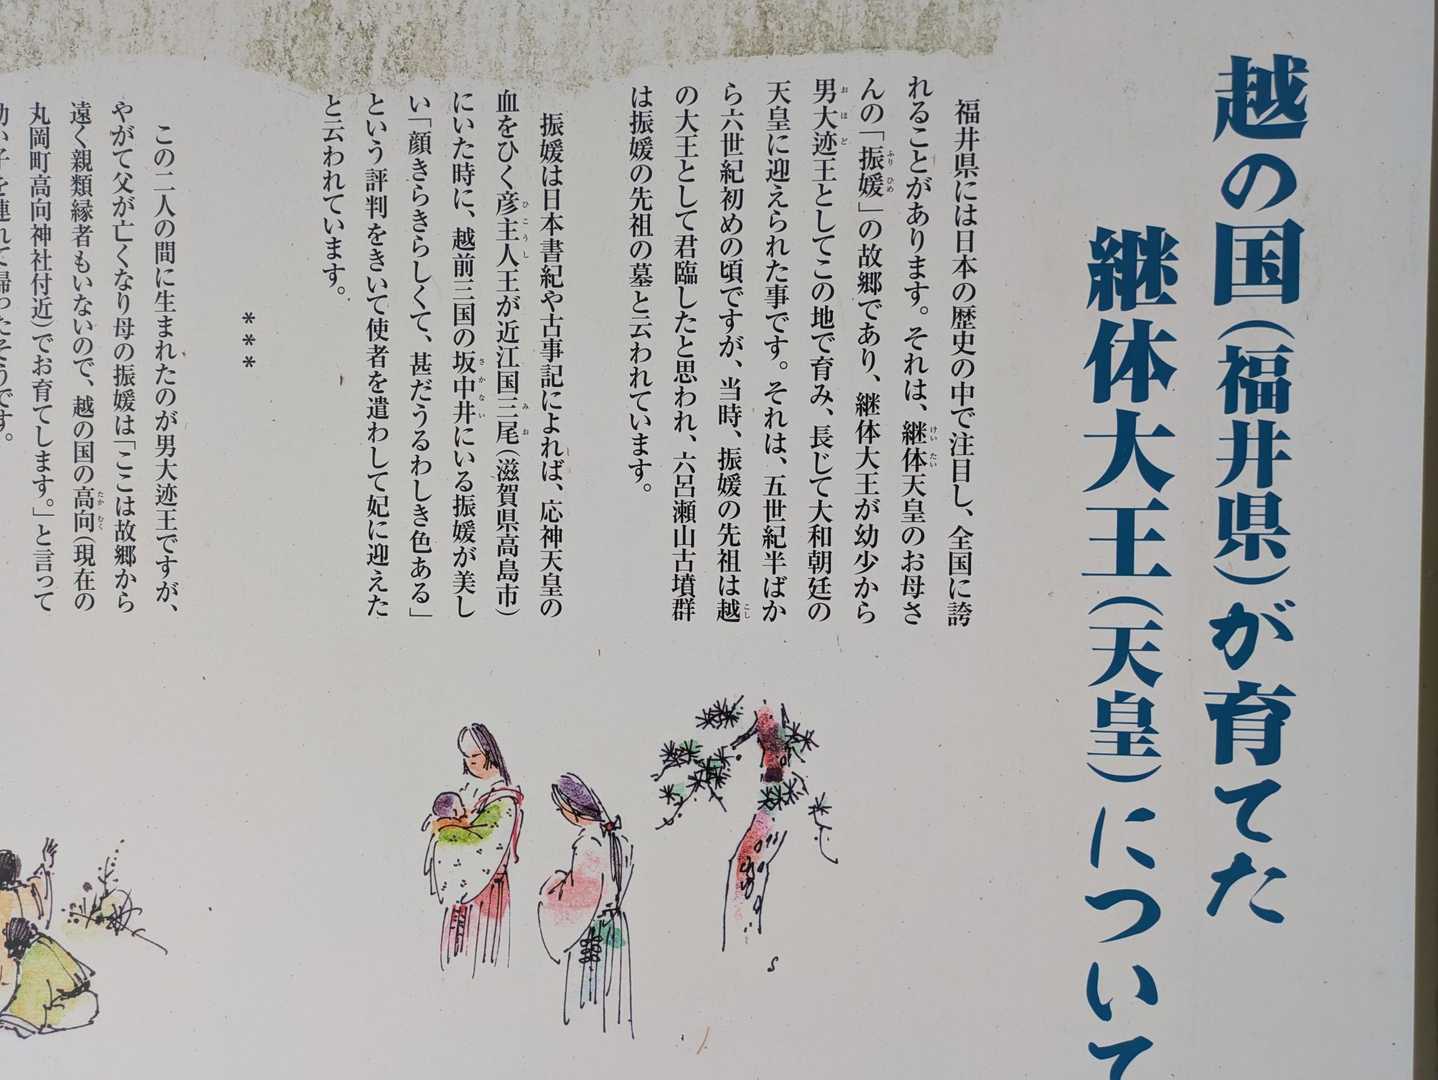 越の国(福井県)が育てた
継体大王(天皇)について
福井県には日本の歴史の中で注目し、全国に誇
れることがあります。それは、継体天皇のお母さ
んの「振媛」の故郷であり、継体大王が幼少から
男大迹王としてこの地で育み、長じて大和朝廷の
天皇に迎えられた事です。それは、五世紀半ばか
ら六世紀初めの頃ですが、当時、振媛の先祖は越
の大王として君臨したと思われ、六呂瀬山古墳群
は振媛の先祖の墓と云われています。
振媛は日本書紀や古事記によれば、応神天皇の
血をひく彦主人王が近江国三尾(滋賀県高島市)
にいた時に、越前三国の坂中井にいる振媛が美し
い「顔きらきらしくて、甚だうるわしき色ある」
という評判をきいて使者を遣わして妃に迎えた
と云われています。
***
この二人の間に生まれたのが男大迹王ですが、
やがて父が亡くなり母の振媛は「ここは故郷から
遠く親類縁者もいないので、越の国の高向(現在の
丸岡町高向神社付近)でお育てします。」と言って
幼い子を連れて帰ったそうです。